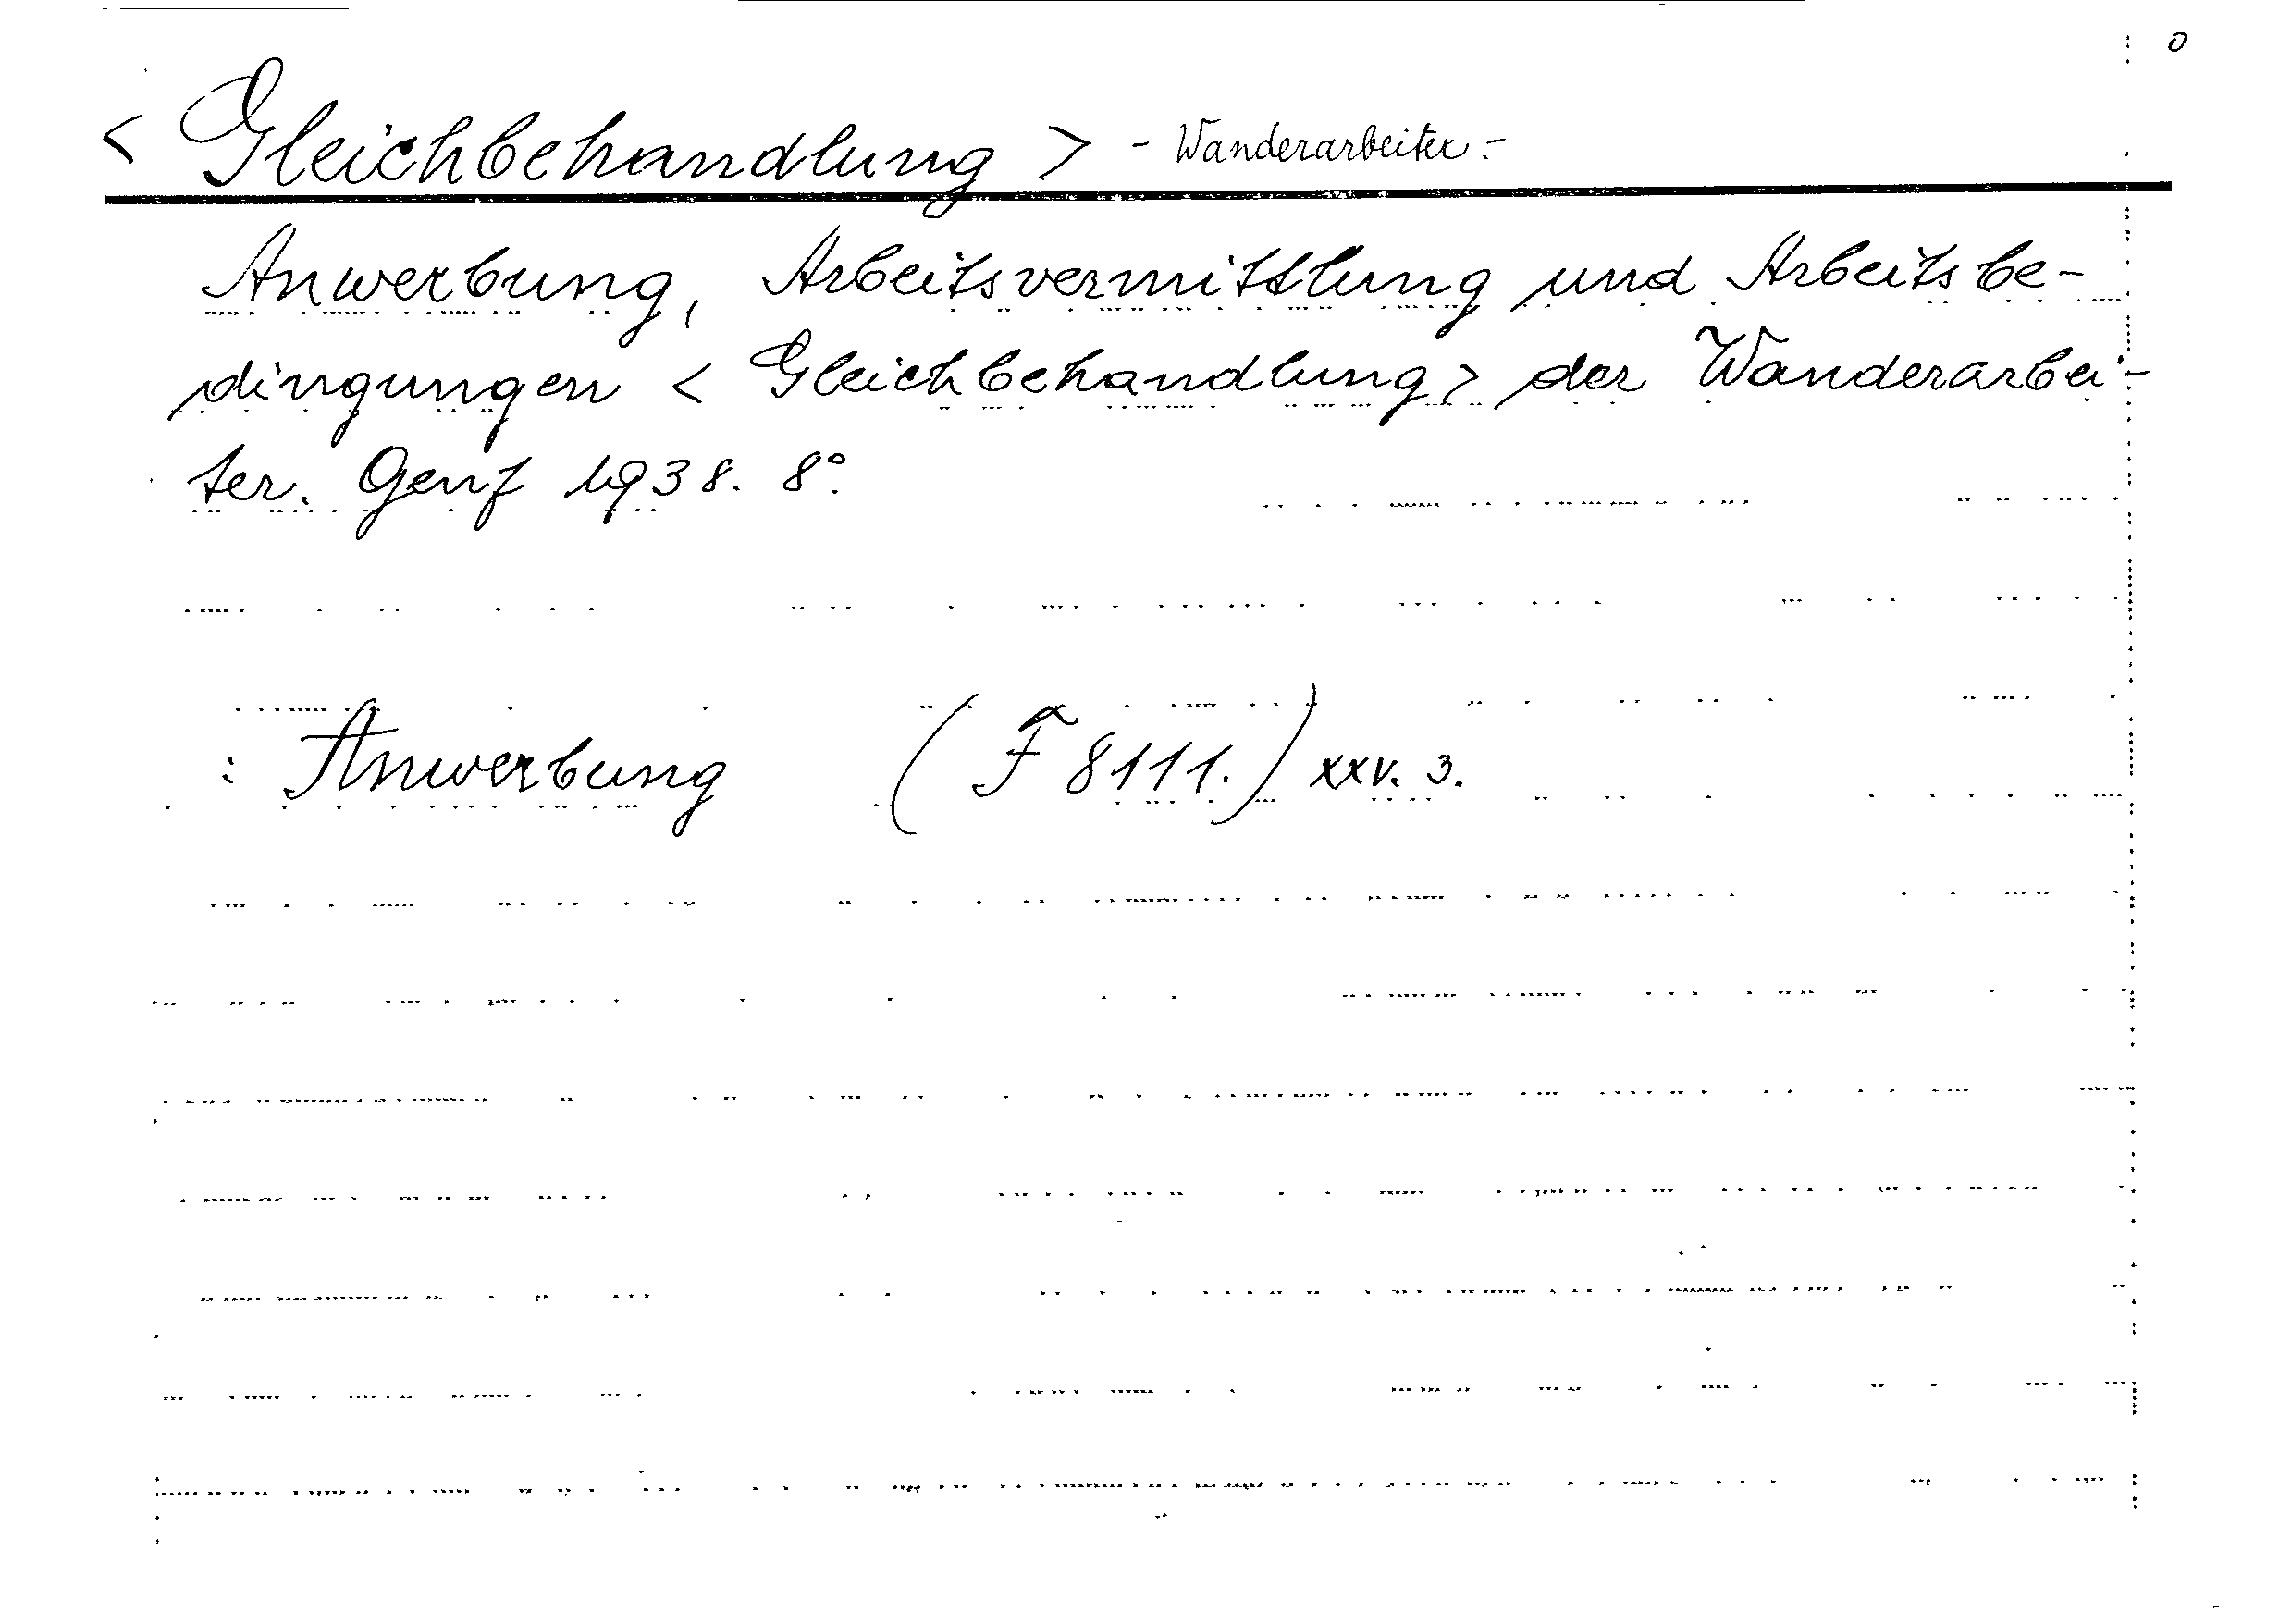 < Gleichbehandlung > - Wanderarbeiter.-
Anwerbung, Arbeitsvermittlung und Arbeitsbe-
dingungen < Gleichbehandlung > der Wanderarbei-
ter. Genf 1938. 8°.
: Anwerbung ( F 8111. ) XXV. 3.